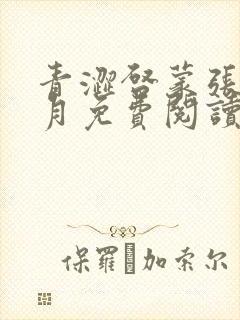 青澀啓蒙張
月免費閱讀
保羅·加索尔